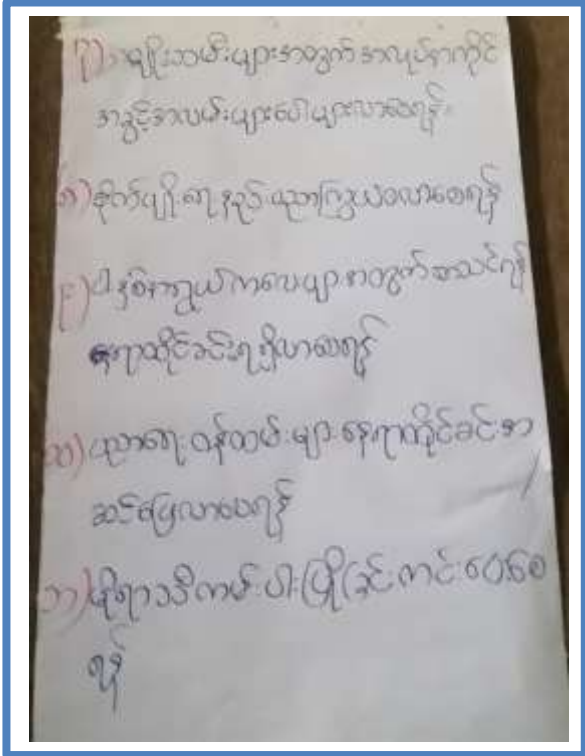 ၇) အမျိုးသမီးများအတွက် အလုပ်အကိုင်
အခွင့်အလမ်းများပေါများလာစေရန်။
၈) စိုက်ပျိုးရေးနည်းပညာကြွယ်ဝလာစေရန်
၉) ၅နှစ်အရွယ်ကလေးများအတွက်စာသင်ရန်
နေရာထိုင်ခင်းရရှိလာစေရန်
၁၀) ပညာရေးဝန်ထမ်းများနေရာထိုင်ခင်းအ
ဆင်ပြေလာစေရန်
၁၁) မိုးရာသီကမ်းပါးပြိုခြင်းကင်းဝေးစေ
ရန်